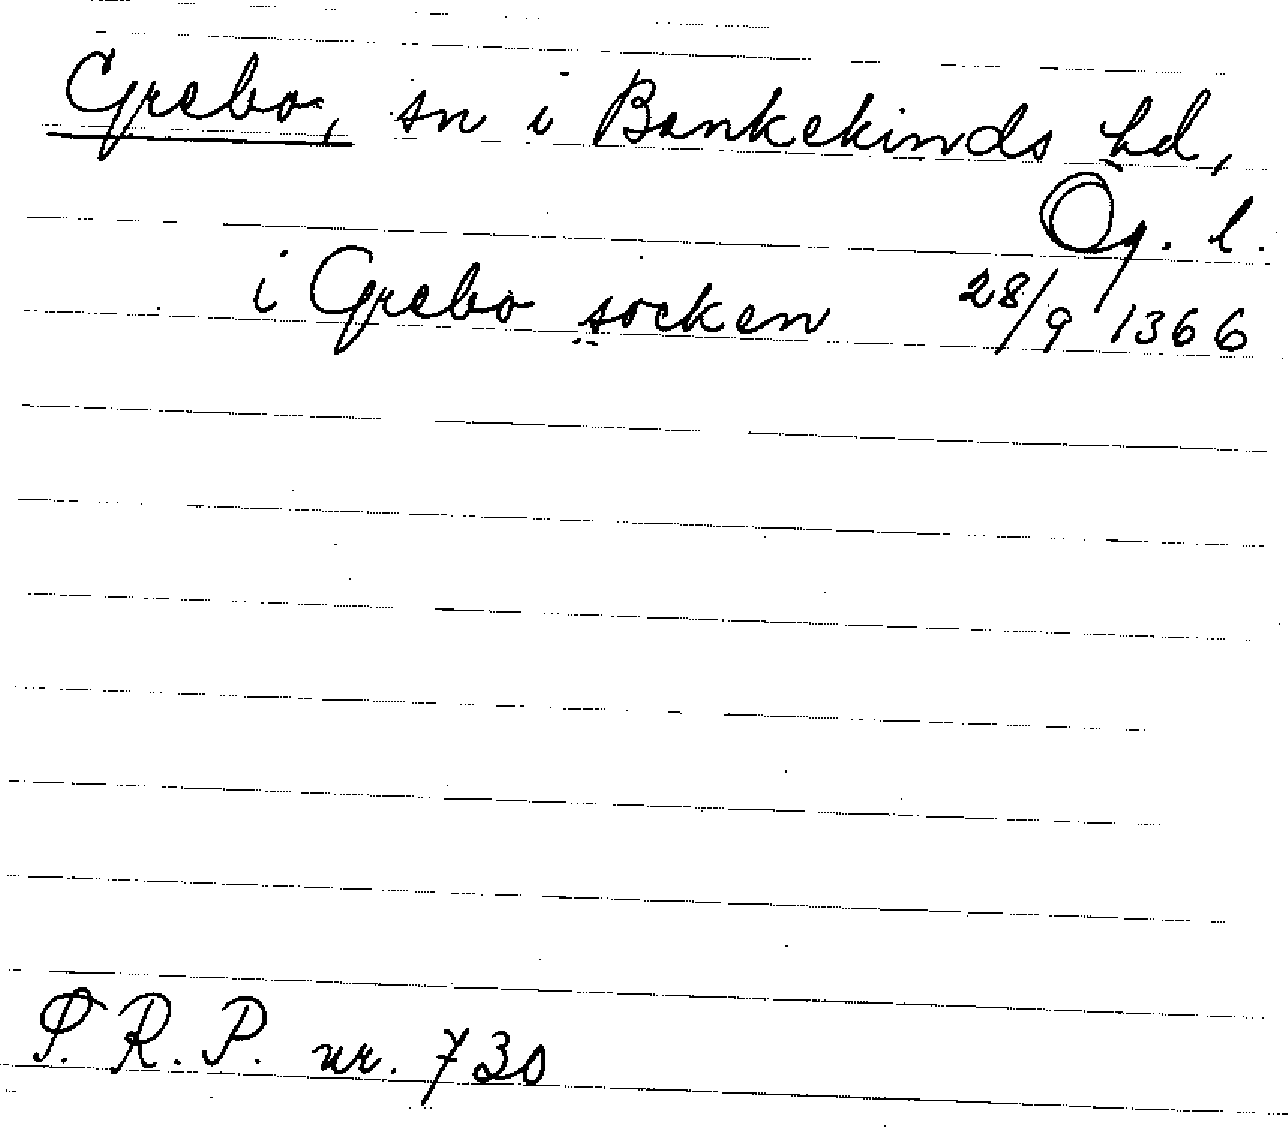 Grebo, sn i Bankekinds hd,
Ög. l.
i Grebo socken 28/9 1366
P. R. P. nr. 730